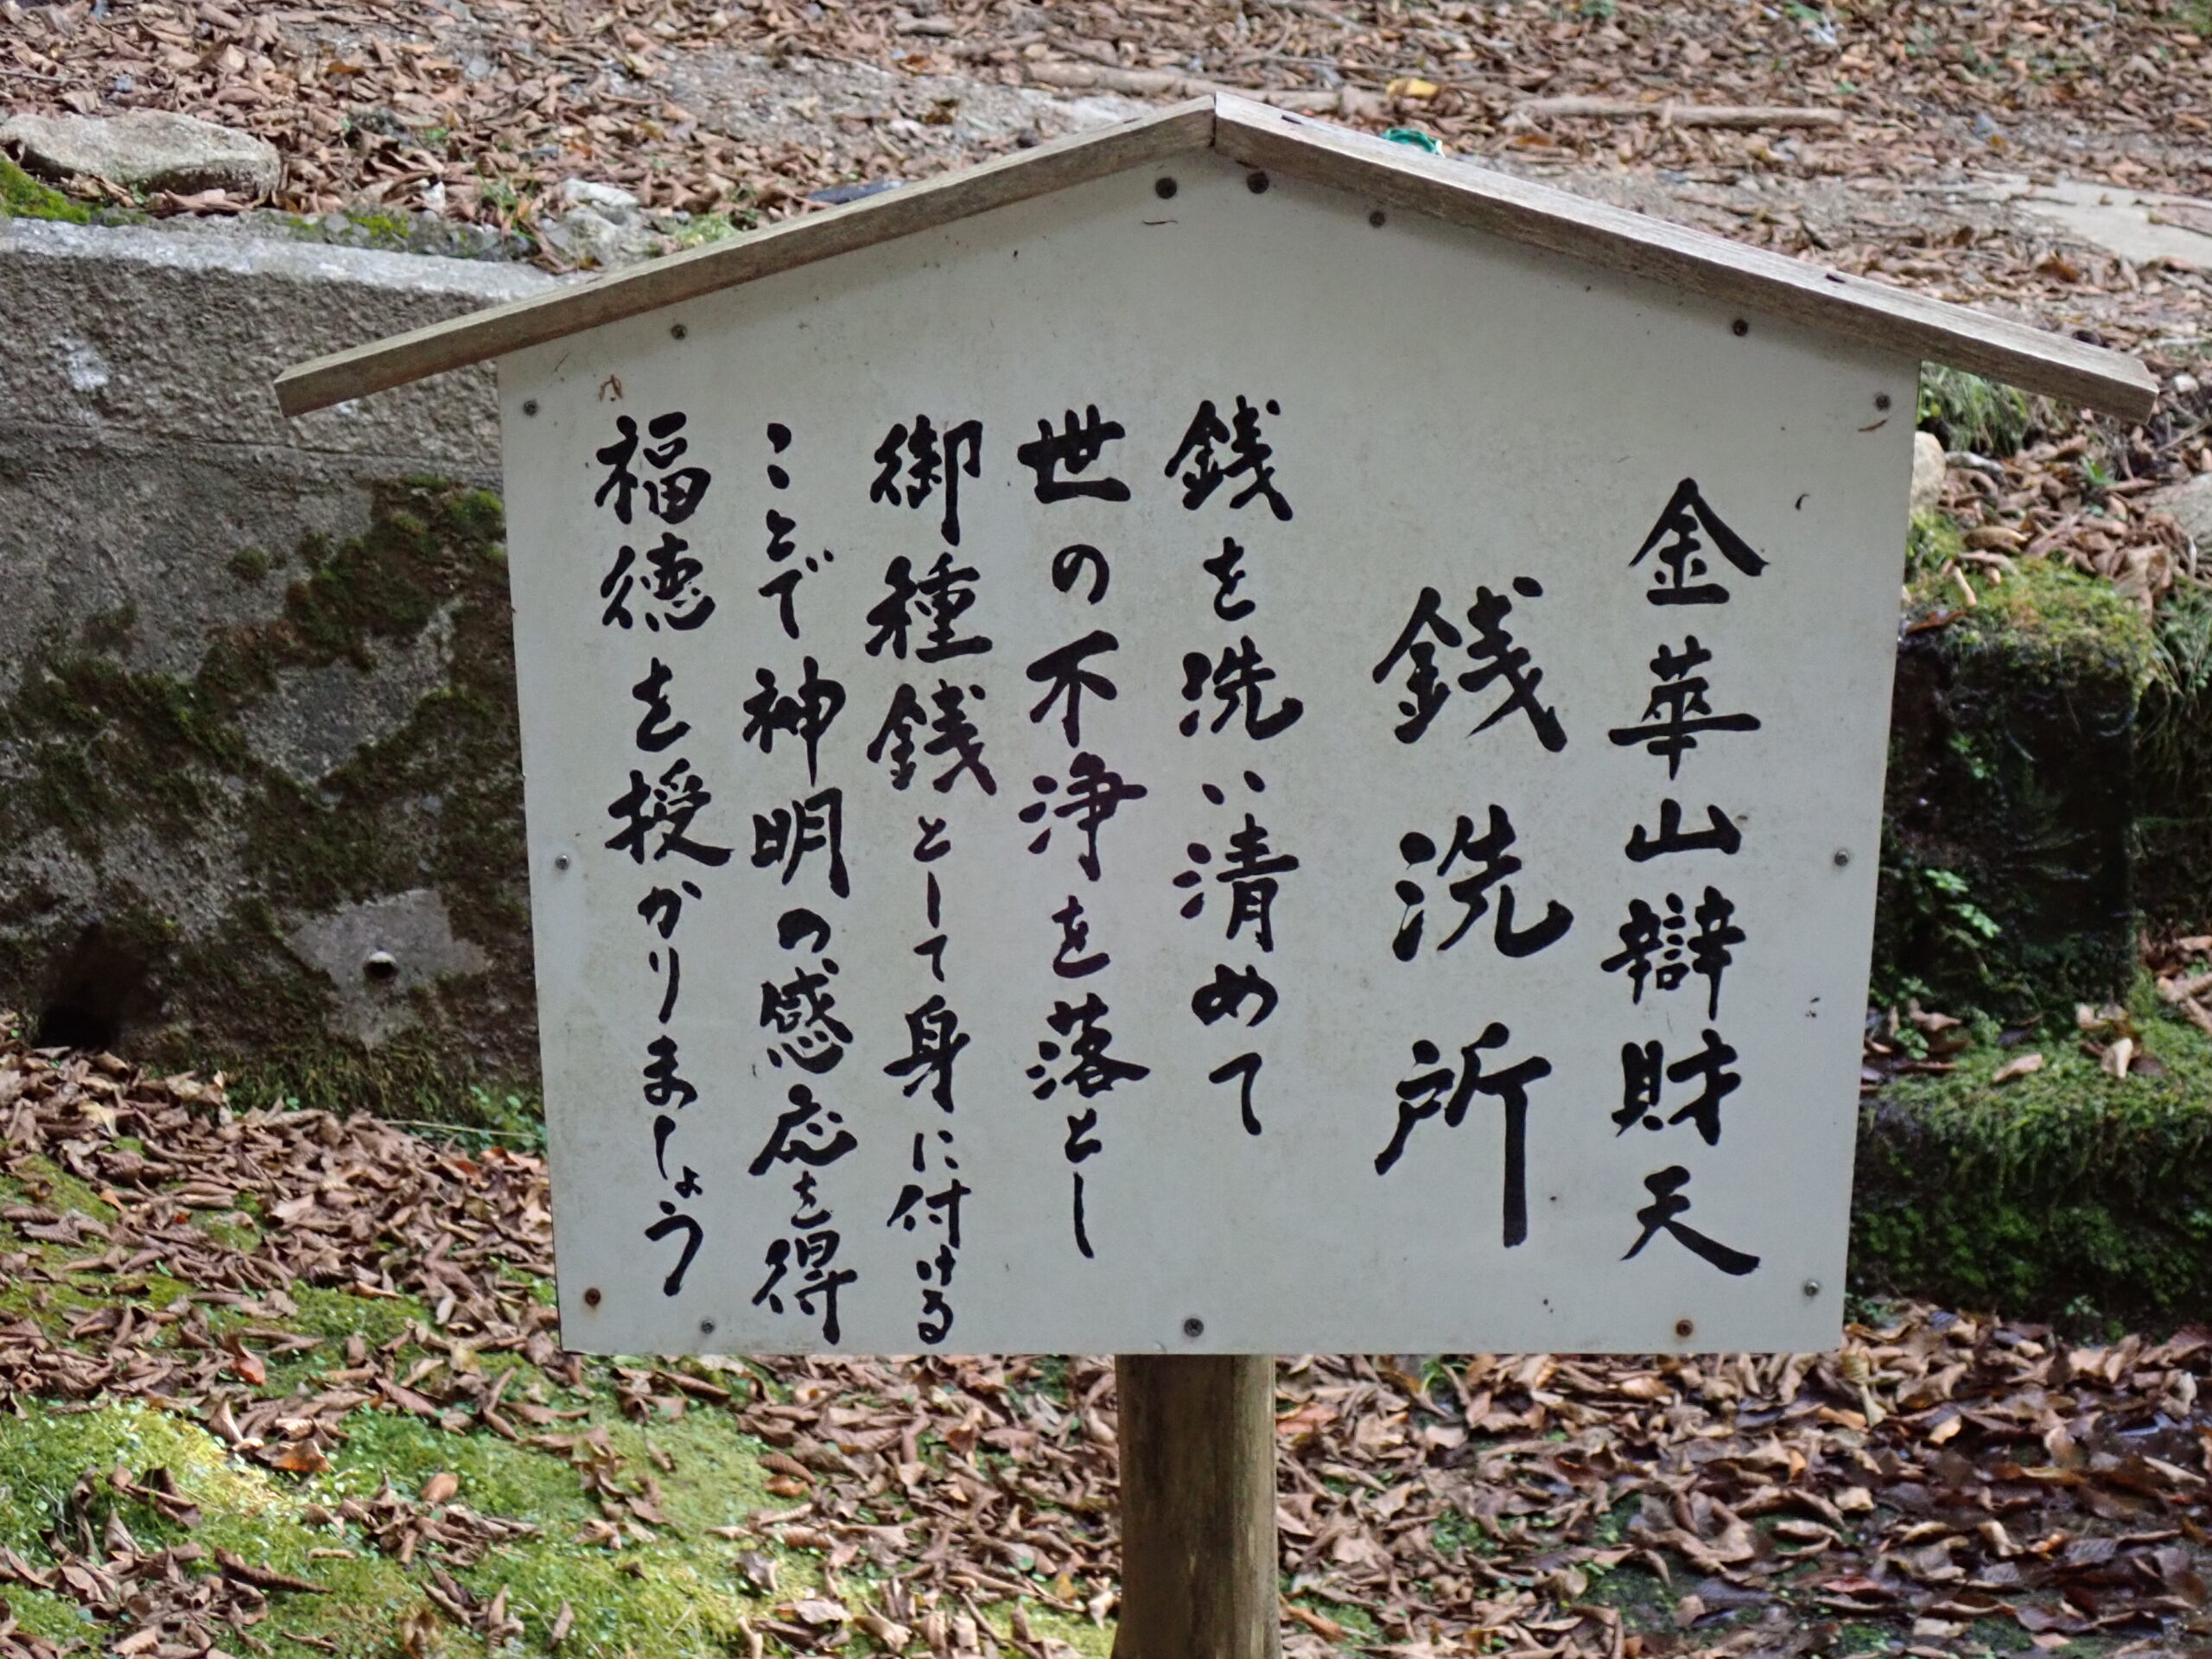 金華山辯財天
銭洗所
銭を洗い清めて
世の不浄を落とし
御種銭として身に付ける
ことで神明の感応を得
福徳を授かりましょう